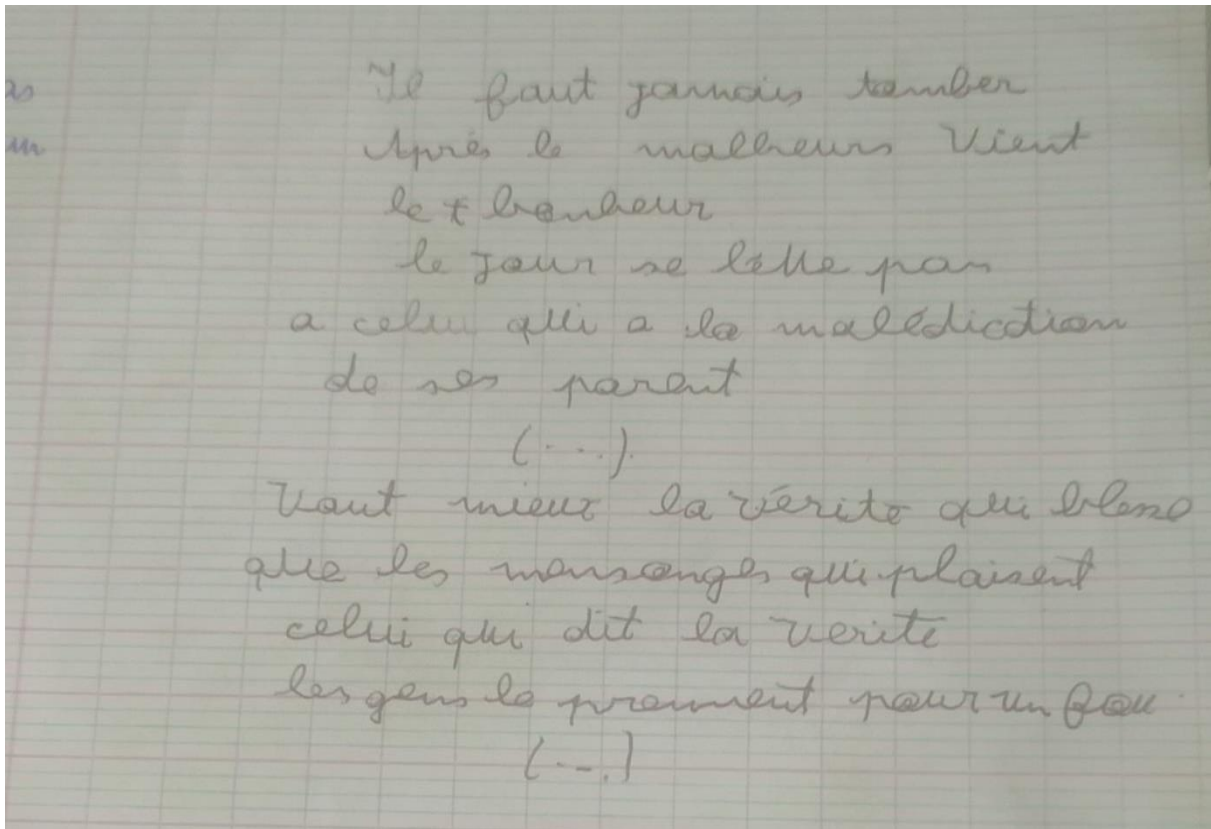 as
Il faut jamais tomber
un
Après le malheurs Vient
le bonheur
le jour se lève pas
a celui qui a la malédiction
de ses parent
(...).
Vaut mieux la vérite qui blesse
que les mensonges qui plaisent
celui qui dit la verité
les gens le prennent pour un fou
(...)